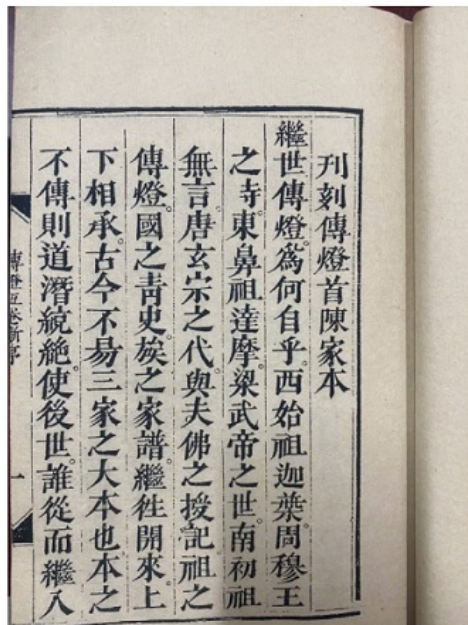 刊刻傳燈首陳家本
繼世傳燈。為何自乎。西始祖迦葉。周穆王
之寺。東鼻祖達摩。梁武帝之世。南初祖
無言。唐玄宗之代。與夫佛之授記。祖之
傳燈。國之靑史。族之家譜。繼徃開來。上
下相承。古今不易三家之大本也。本之
不傳則道潛統絕。使後世。誰從而繼入
傳燈五卷新序
一